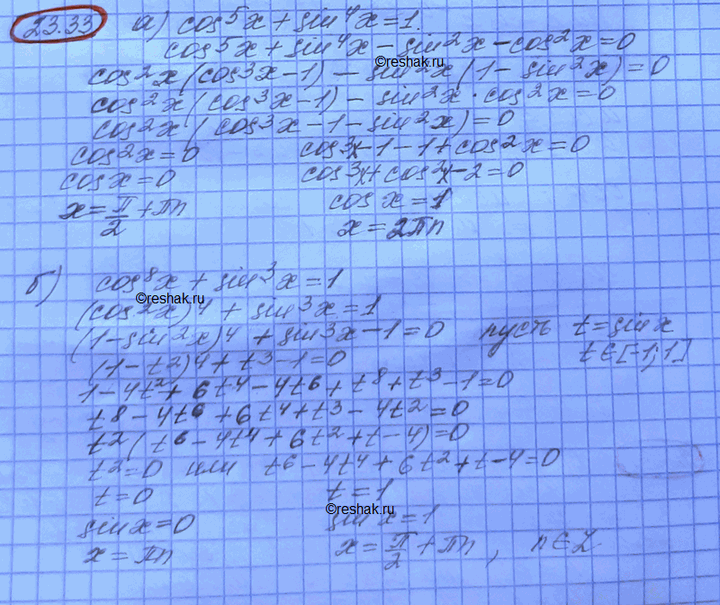 23.33 а) cos⁵x + sin⁴x = 1.
cos⁵x + sin⁴x - sin²x - cos²x = 0
©reshak.ru
cos²x (cos³x - 1) - sin²x (1 - sin²x) = 0
cos²x (cos³x - 1) - sin²x · cos²x = 0
cos²x (cos³x - 1 - sin²x) = 0
cos²x = 0 cos³x - 1 - 1 + cos²x = 0
cos x = 0 cos³x + cos³x - 2 = 0
x = π/2 + πn cos x = 1
x = 2πn
б) cos⁸x + sin³x = 1
©reshak.ru
(cos²x)⁴ + sin³x = 1
(1 - sin²x)⁴ + sin³x - 1 = 0 пусть t = sin x
(1 - t²)⁴ + t³ - 1 = 0 t ∈ [-1; 1]
1 - 4t² + 6t⁴ - 4t⁶ + t⁸ + t³ - 1 = 0
t⁸ - 4t⁶ + 6t⁴ + t³ - 4t² = 0
t² (t⁶ - 4t⁴ + 6t² + t - 4) = 0
t² = 0 или t⁶ - 4t⁴ + 6t² + t - 4 = 0
t = 0 t = 1
©reshak.ru
sin x = 0 sin x = 1
x = πn x = π/2 + πn, n ∈ Z